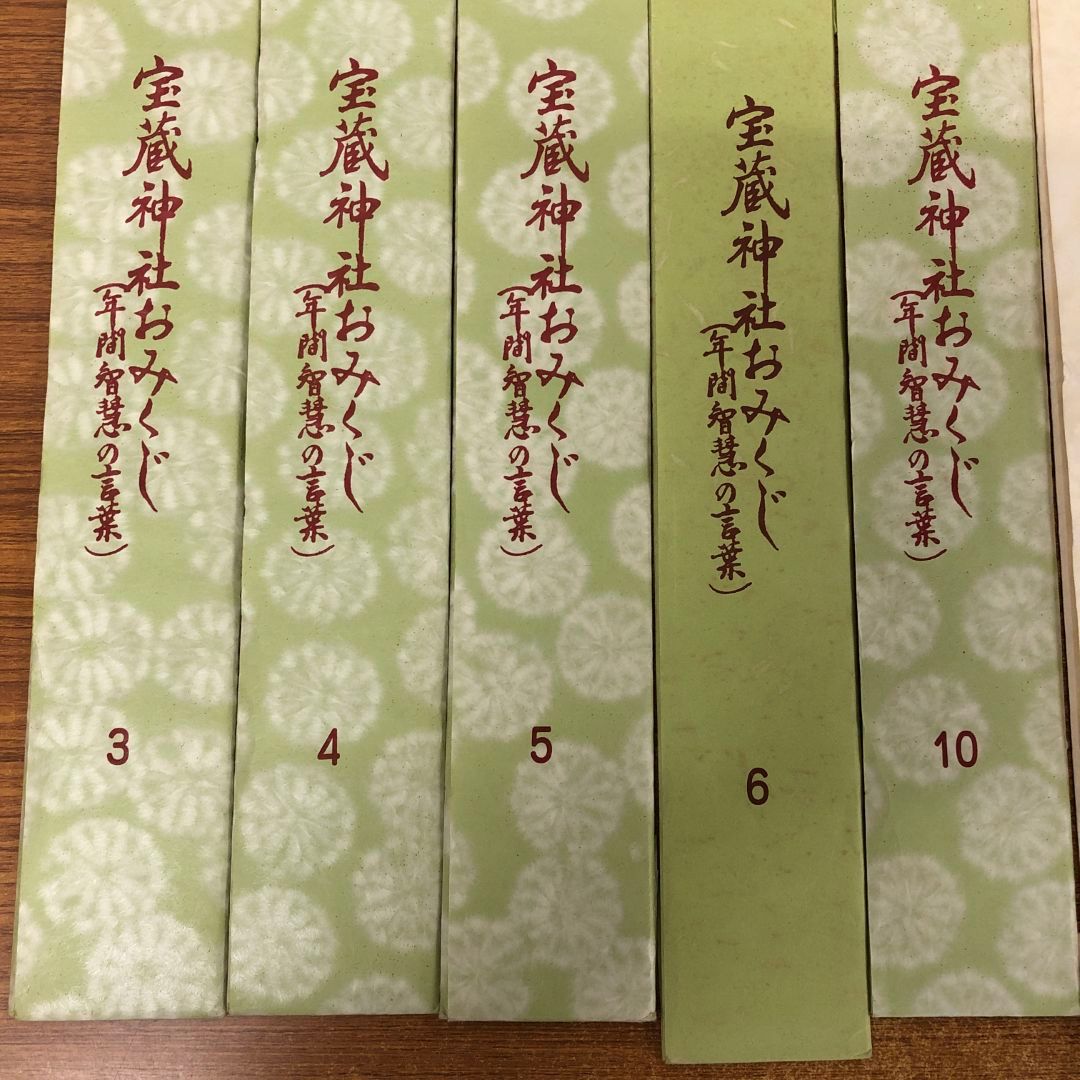 宝蔵神社おみくじ
(年間智慧の言葉)
3
宝蔵神社おみくじ
(年間智慧の言葉)
4
宝蔵神社おみくじ
(年間智慧の言葉)
5
宝蔵神社おみくじ
(年間智慧の言葉)
6
宝蔵神社おみくじ
(年間智慧の言葉)
10